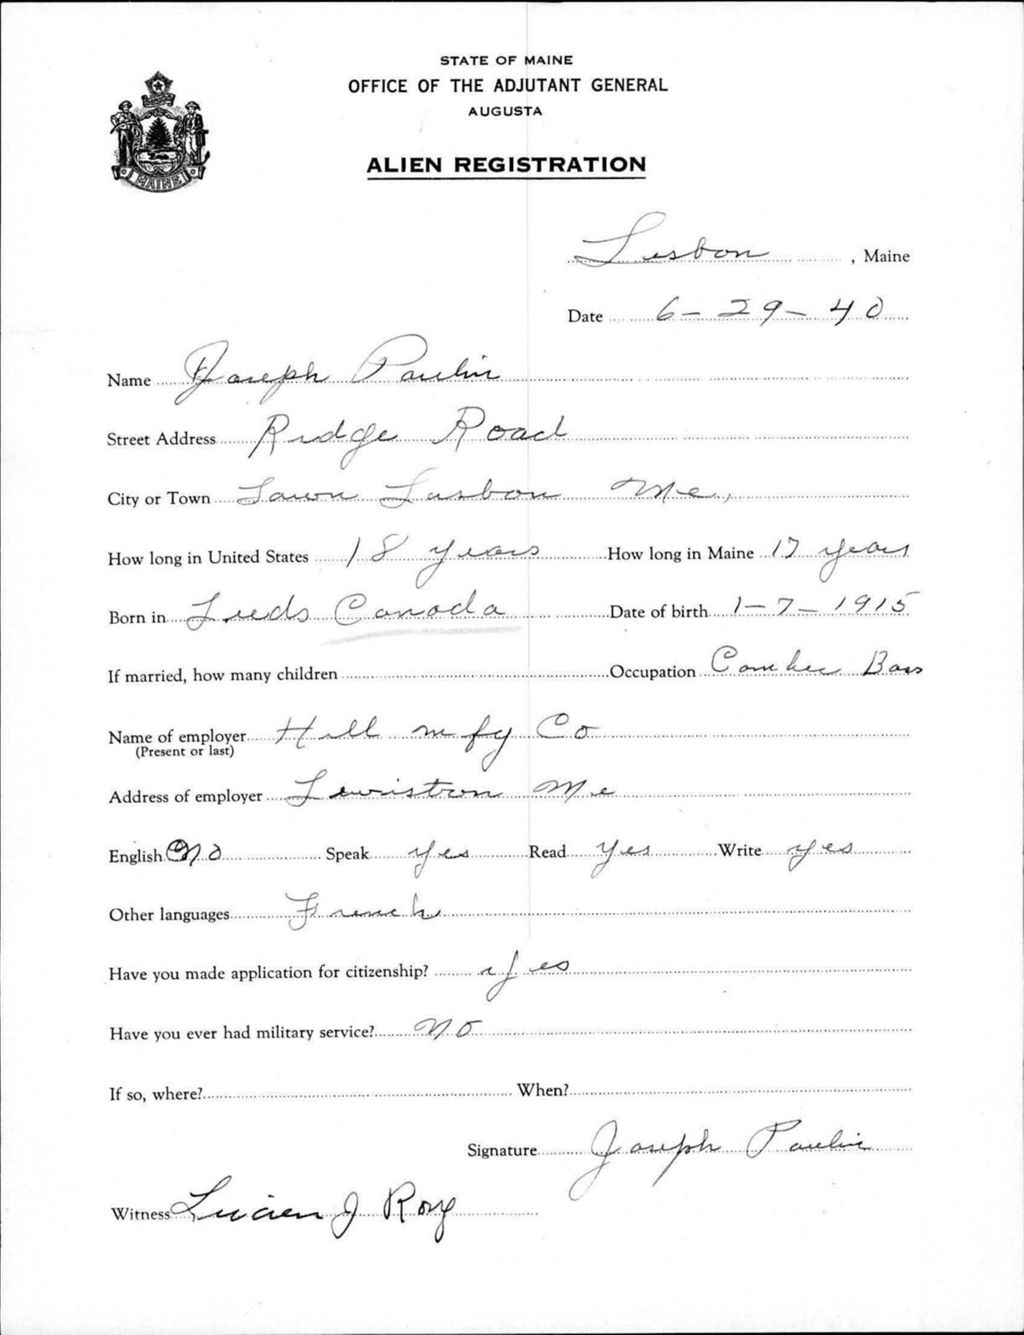 STATE OF MAINE
OFFICE OF THE ADJUTANT GENERAL
AUGUSTA
ALIEN REGISTRATION
MAINE
Lisbon, Maine
Date 6-29-40
Name Joseph Paulin
Street Address Ridge Road
City or Town Town Lisbon Me,
How long in United States 18 years How long in Maine 17 years
Born in Leeds Canada Date of birth 1-7-1915
If married, how many children Occupation Comber Boss
Name of employer Hill mfy Co
(Present or last)
Address of employer Lewiston Me
English No Speak yes Read yes Write yes
Other languages French
Have you made application for citizenship? yes
Have you ever had military service? No
If so, where? When?
Signature Joseph Paulin
Witness Lucien J Roy